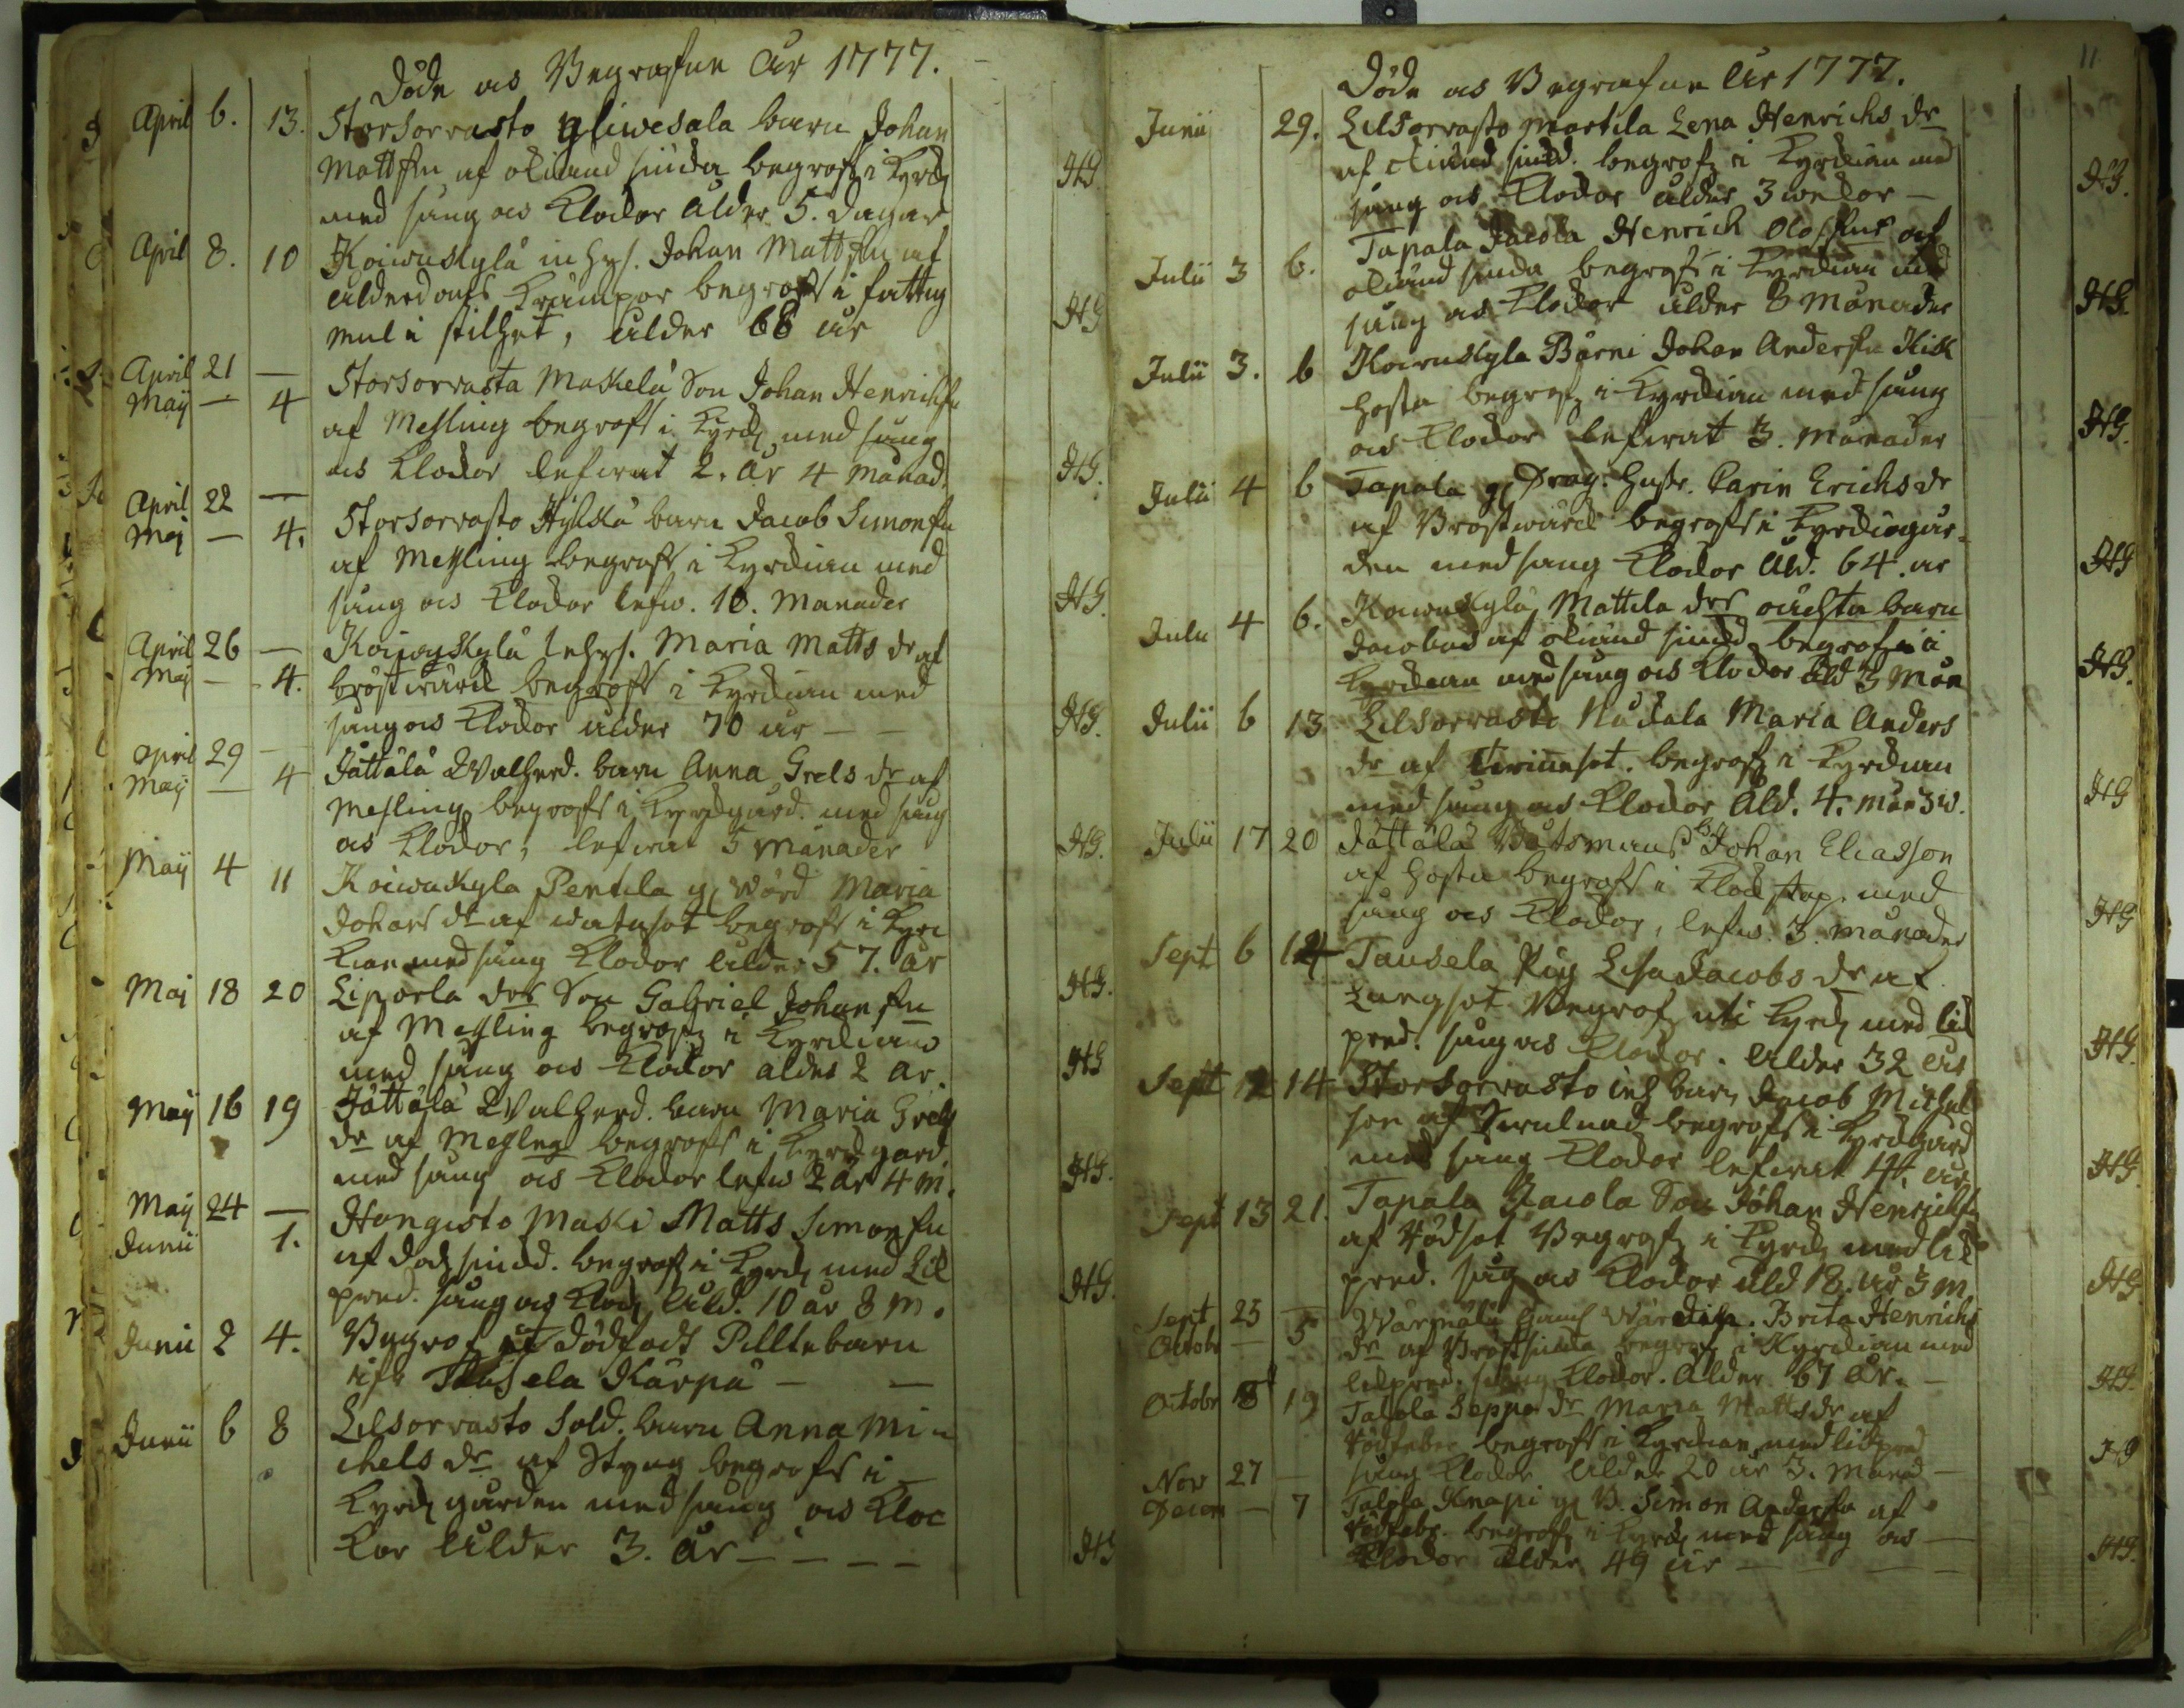 Döde och Begrafne År 1777.
April 6. 13. Storsorrasto Yliwesala barn Johan
Mattssn af okiänd siuka begrofs i Kyrk
med sång och Klockor ålder 5. dagar HG.
April 8. 10 Koiwukylä inhys. Johan Mattssn af
ålderdoms Krämpor begrofs i fattig
mul i stilhet, ålder 68 år HG
April 21 — Storsorrasta Maskelä Son Johan Henrichssn
Maij — 4 af Messling begrofs i Kyrk med sång
och Klockor lefwat 2. År 4 Månad. HG.
April 22 — Storsorrasto Hylkkä barn Jacob Simonssn
Maj — 4. af Messling begrofs i Kyrckian med
sång och Klockor lefw. 10. Månader HG.
April 26 — Koiwukylä Inhys. Maria Matts dr af
Maj — 4. bröstwärck begrofs i Kyrckian med
sång och Klockor ålder 70 år — — HG.
April 29 — Jättälä Walherd. barn Anna Grels dr af
Maij — 4 Messling begrofs i Kyrckgård. med sång
och Klockor, lefwat 5 månader HG.
Maij 4 11 Koiwukyla Pentila gl Wärd Maria
Johans dr af watusot begrofs i Kyrc
kian med sång Klockor ålder 57. år HG.
Maj 18 20 Liporla drs Son Gabriel Johanssn
af Messling begrofs i Kyrckian
med sång och Klockor ålder 2 år. HG
Maij 16 19 Jättälä Walherd. barn Maria Grels
dr af Messling begrofs i Kyrckgård
med sång och Klockor lefw 2 år 4 m. HG.
Maij 24 — Hongisto Maski Matts Simonssn
Junii 1. af siukd. begrofs i Kyrck med Lik
pred. sång och Klock, åld. 10 år 8 m. HG.
Junii 2 4. Begrof et dödfödt Pilltebarn
ifr Tausela Kärpä — —
Junii 6 8 Lilsorrasto Sold. barn Anna Mi-
chels dr af Styng begrofs i
Kyrckgården med sång och Kloc
kor ålder 3. år — — — — HG
11
Döde och Begrafne År 1777.
Junii 29. Lilsorrasto Martila Lena Henrichs dr
af okiänd siukd. begrofs i Kyrckian med
sång och Klockor ålder 3 wekor — HG.
Julii 3 6. Tapala Jacola Henrich Olofssns af
okiänd siuka begrofs i Kyrckian med
sång och Klockor ålder 8 Månader HG.
Julii 3. 6 Koiwukyla Bärni Johan Anderssn Kik
hosta begrofs i Kyrckian med sång
och Klockor lefwat 3. månader HG.
Julii 4 6 Tapala gl Drag. hustr. Carin Erichs dr
af Brostwärck begrofs i Kyrckiogår-
den med sång Klockor Åld. 64. år HG
Julii 4 6. Koiwukylä Mattila drs oächta barn
Jacobus af okiänd siukd. begrofs i
Kyrckian med sång och Klockor åld 3 Mån HG.
Julii 6 13 Lilsorrasto Maria Anders
dr af begrofs i Kyrckian
med sång och Klockor Åld. 4. mån 3 w. HG
Julii 17 20 Jättälä Båtsmans Johan Eliasson
af hosta begrofs i Klockstap. med
sång och Klockor, lefw. 3. månader HG
Sept 6 14 Tausela Pig Lisa Jacobs dr af
Lungsot Begrof uti Kyrck med lik
pred. sång och Klockor. ålder 32 år HG.
Sept 12 14 Storsorrasto inh barn Jacob Michel
son af begrofs i Kyrckgård
med sång Klockor lefwat 4. år HG.
Sept 13 21. Tapala Jacola Son Johan Henrichssn
af Rödsot Begrofs i Kyrck med lik
pred. sång och Klockor åld 18. år 3 m. HG.
Sept 25 Wärmälä Brita Henrichs
Octobr — 5 dr af begrofs i Kyrckian med
likpred. sång Klockor. Ålder 67 År. — HG.
Octobr 18 19 Talola Seppo dr Maria Matts dr af
Rödfeber begrofs i Kyrckian med likpred
sång Klockor ålder 20 år 3. månad — HG
Nov 27 —
Decem — 7 Talola Knapi gl B. Simon Anderssn af
Rödfebr. begrofs i Kyrck med sång och —
Klockor ålder 49 år — — — — HG.